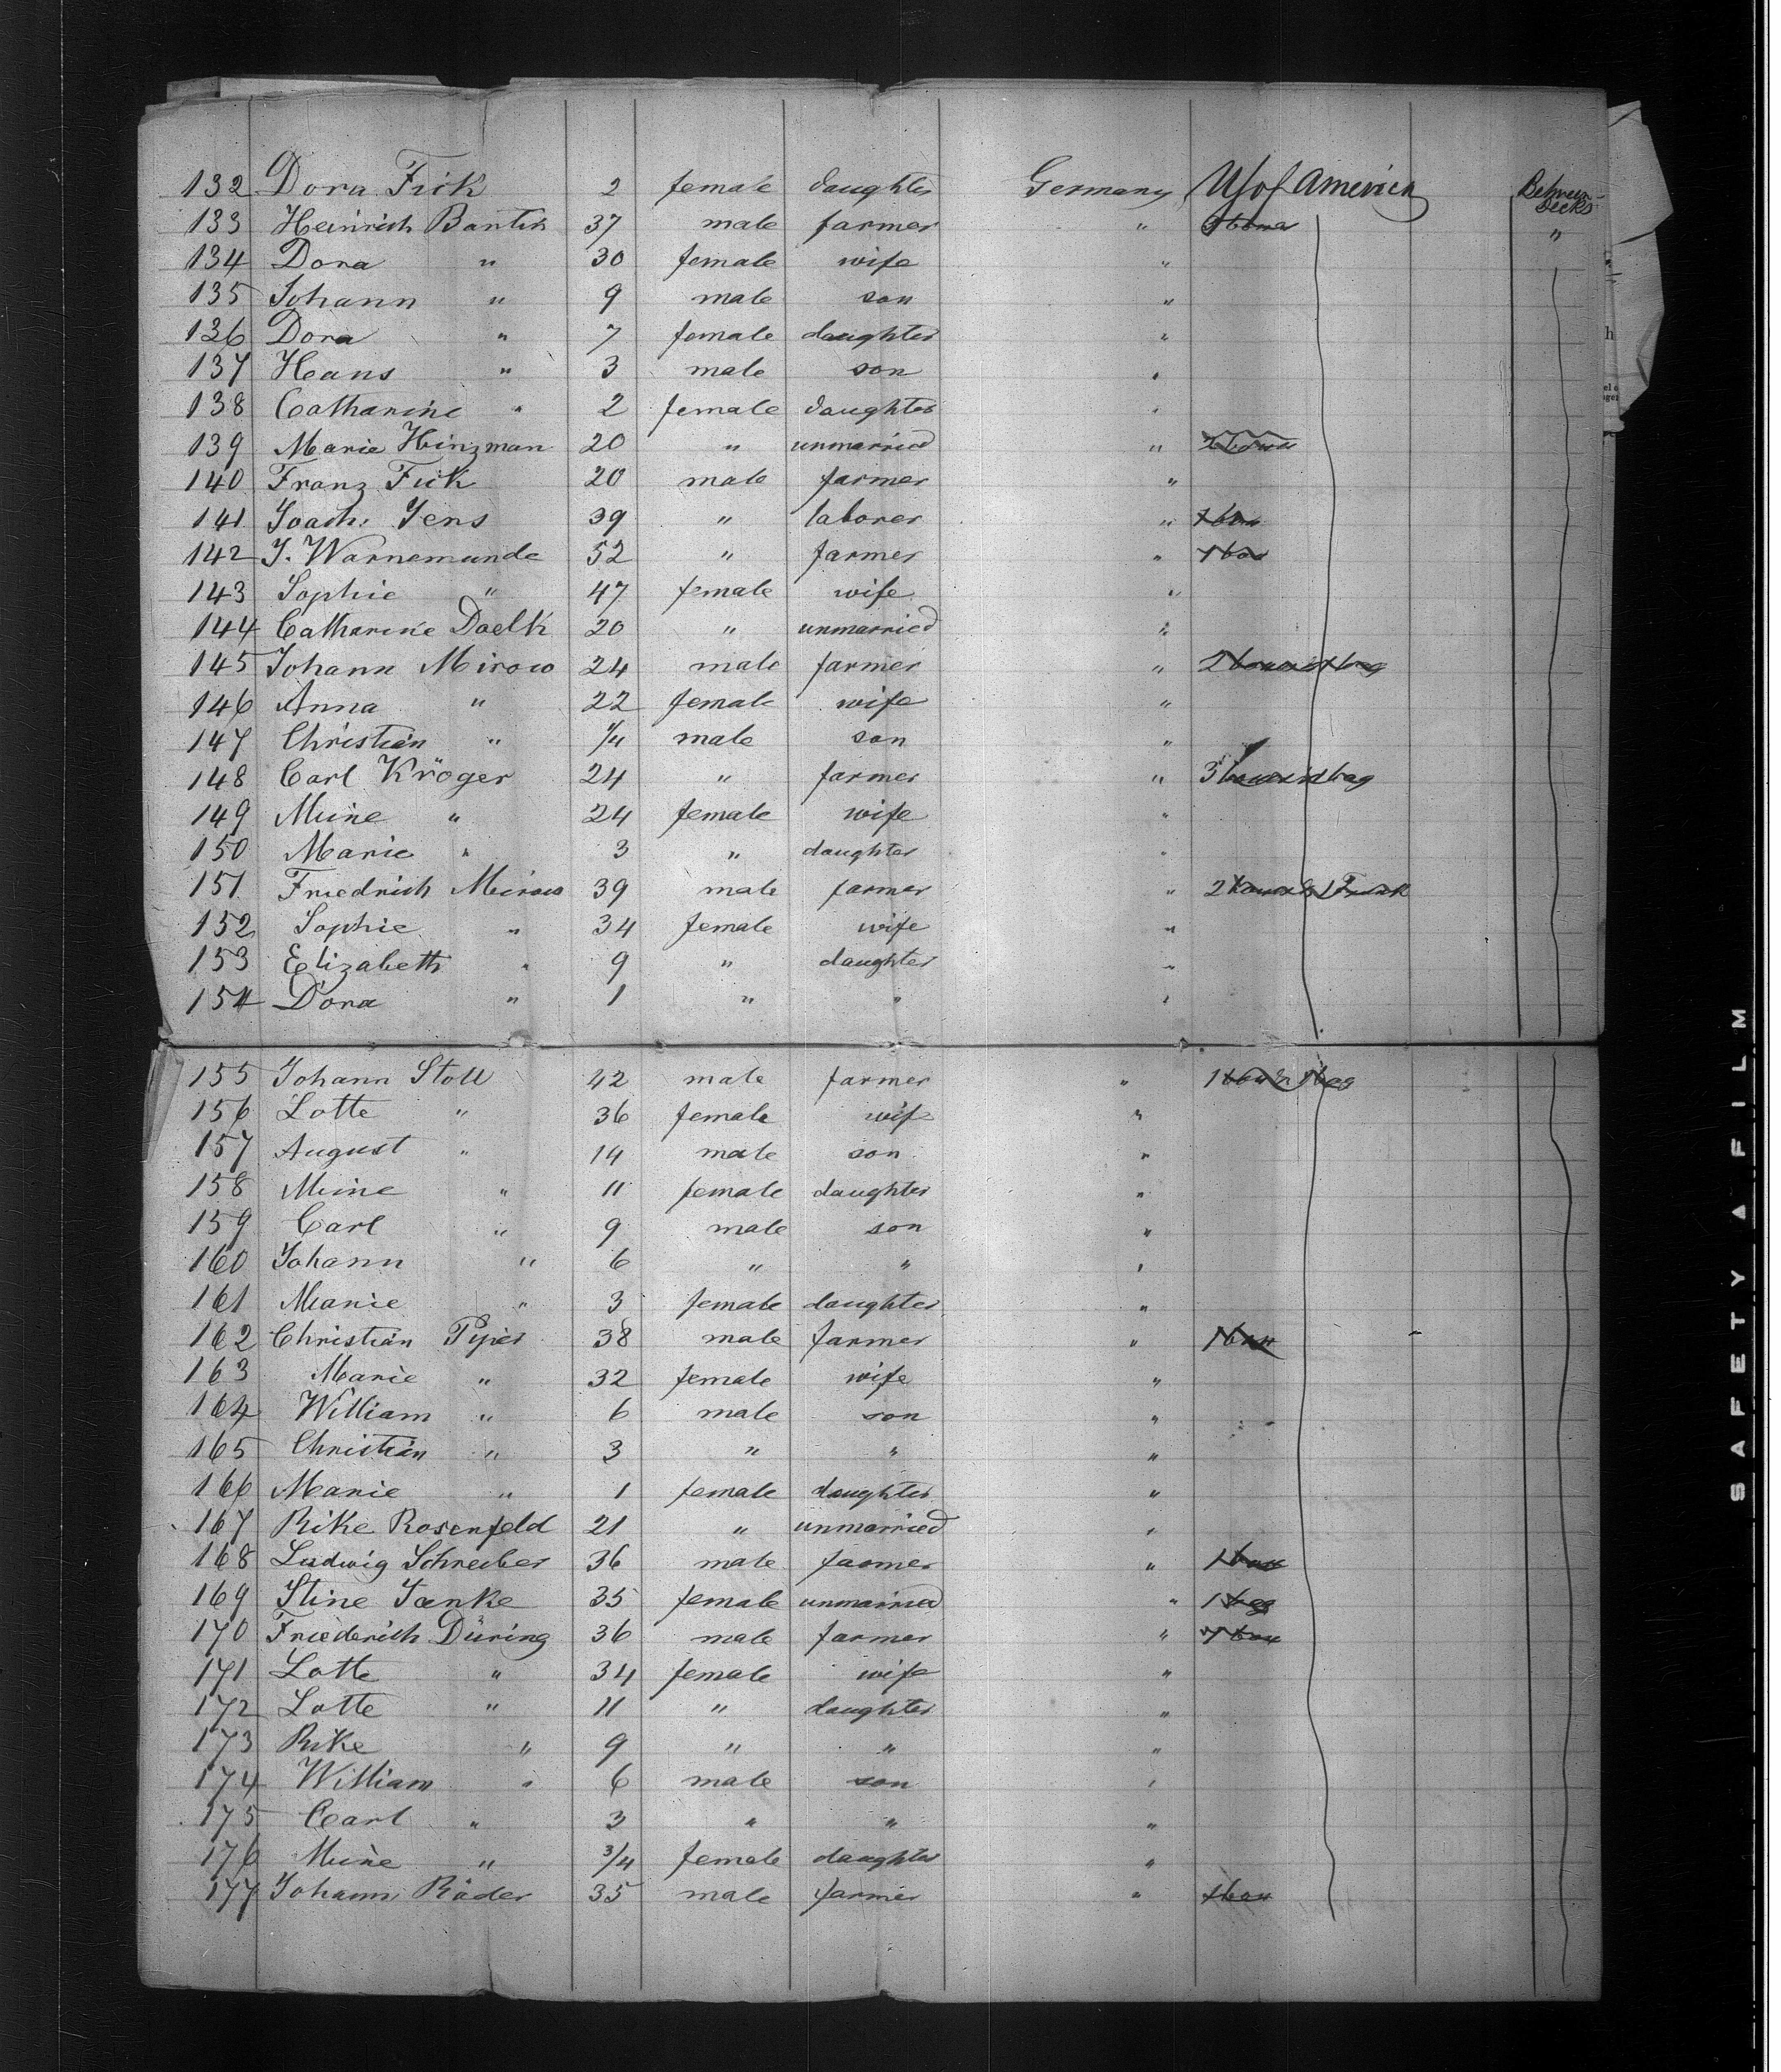 132 Dora Fick 2 female daughter Germany US of America Between decks
133 Heinrich 37 male farmer " "
134 Dora " 30 female wife "
135 Johann " 9 male son "
136 Dora " 7 female daughter "
137 Hans " 3 male son "
138 Catharine " 2 female daughter "
139 Marie Hinzman 20 " unmarried "
140 Franz Fick 20 male farmer "
141 Joach. Jens 39 " laborer " 1 box
142 J. Warnemunde 52 " farmer " 1 box
143 Sophie " 47 female wife "
144 Catharine Daelk 20 " unmarried "
145 Johann Mirow 24 male farmer " 2 boxes 1 bag
146 Anna " 22 female wife "
147 Christian " 1/4 male son "
148 Carl Kröger 24 " farmer " 3 boxes 1 bag
149 Mine " 24 female wife "
150 Marie " 3 " daughter "
151 Friedrich Mirow 39 male farmer " 2 boxes 1 Trunk
152 Sophie " 34 female wife "
153 Elizabeth " 9 " daughter "
154 Dora " 1 " " "
155 Johann Stoll 42 male farmer " 1 box 1 bag
156 Lotte " 36 female wife "
157 August " 14 male son "
158 Mine " 11 female daughter "
159 Carl " 9 male son "
160 Johann " 6 " " "
161 Marie " 3 female daughter "
162 Christian Piper 38 male farmer " 1 box
163 Marie " 32 female wife "
164 William " 6 male son "
165 Christian " 3 " " "
166 Marie " 1 female daughter "
167 Rike Rosenfeld 21 " unmarried "
168 Ludwig Schreiber 36 male farmer " 1 box
169 Stine Janke 35 female unmarried " 1 bag
170 Friederich Düring 36 male farmer " 1 box
171 Lotte " 34 female wife "
172 Lotte " 11 " daughter "
173 Rike " 9 " " "
174 William " 6 male son "
175 Carl " 3 " " "
176 Mine " 3/4 female daughter "
177 Johann Räder 35 male farmer " 1 box
SAFETY ▲ FILM